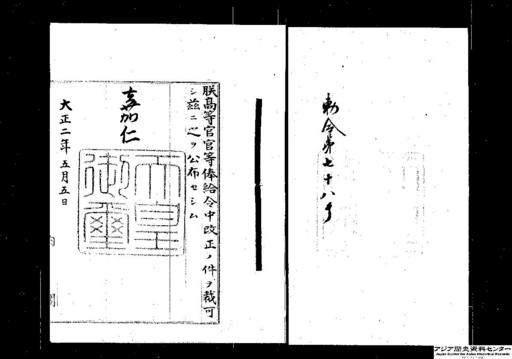 勅令第七十八号
朕高等官官等俸給令中改正ノ件ヲ裁可
シ茲ニ之ヲ公布セシム
嘉仁
天皇御璽
大正二年五月五日
内閣
アジア歴史資料センター
Japan Center for Asian Historical Records